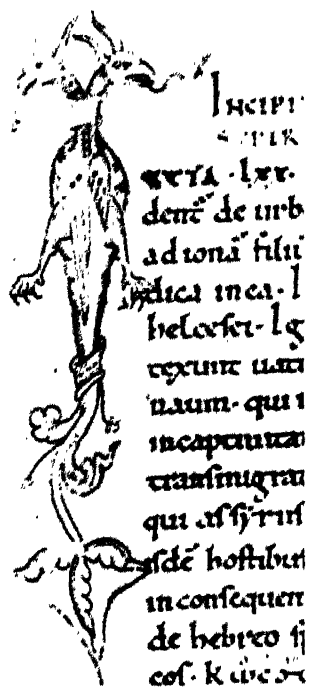 INCIPI
SUPER
IUXTA · lxx ·
dent de urb
ad ionā filii
dica in ea · I
helcesei · Ig
texunt uati
naum · qui i
in captiuitat
transmigrat
qui assyrius
isdē hostibus
in consequen
de hebreo
eos ·